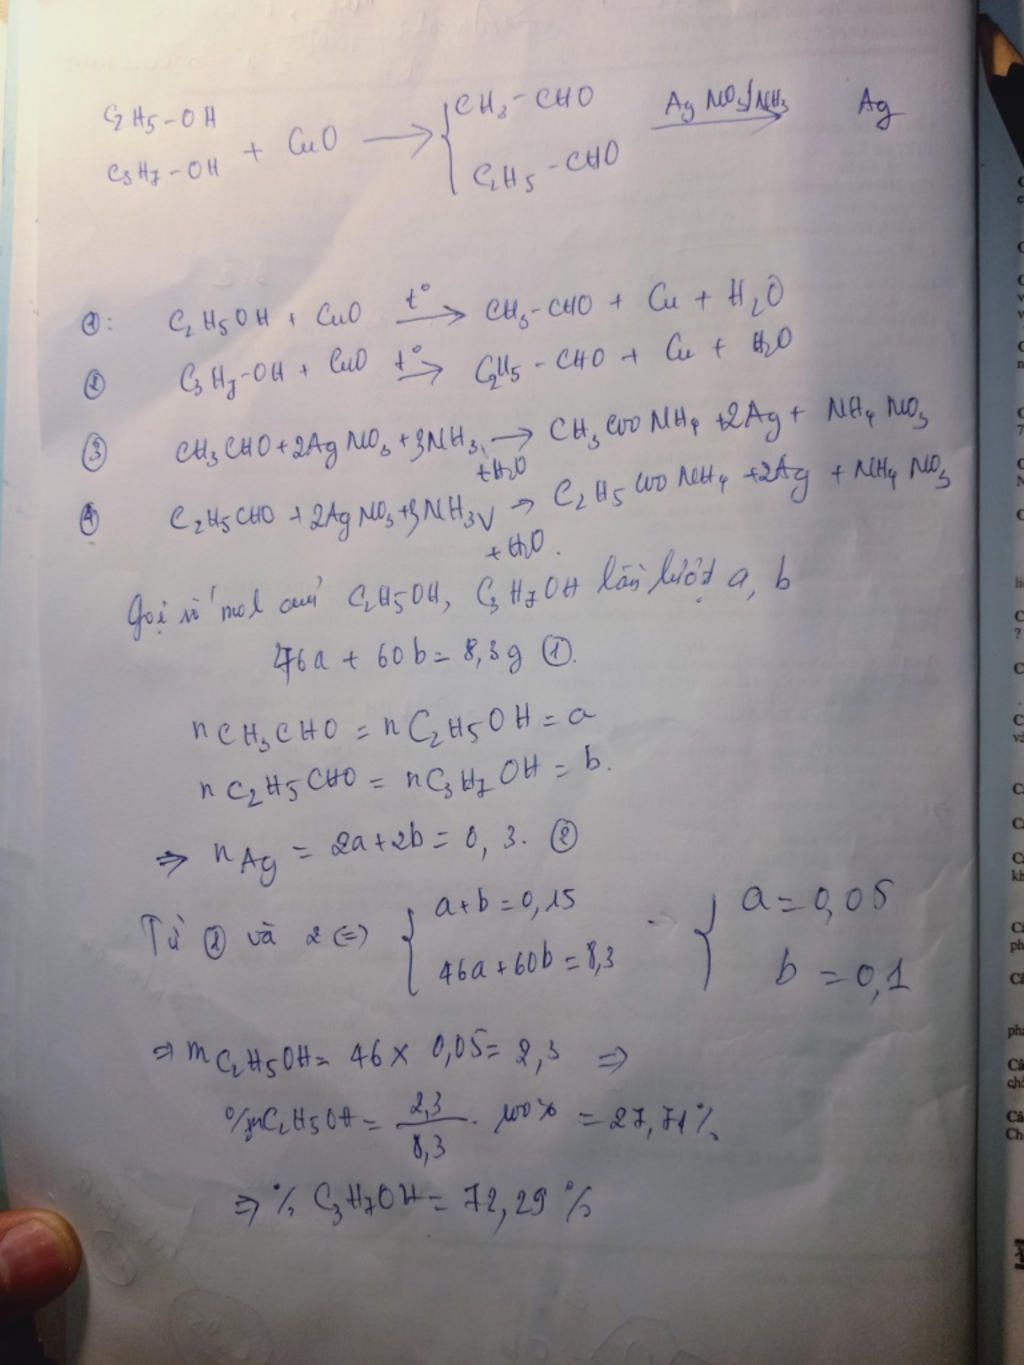 C2H5-OH
C3H7-OH + CuO → { CH3-CHO AgNO3/NH3 → Ag
C2H5-CHO
①: C2H5OH + CuO t° → CH3-CHO + Cu + H2O
② C3H7-OH + CuO t° → C2H5-CHO + Cu + H2O
③ CH3CHO+2AgNO3+3NH3 → CH3COONH4 +2Ag + NH4NO3
+H2O
④ C2H5CHO +2AgNO3+3NH3 → C2H5COONH4 +2Ag + NH4NO3
+H2O.
Gọi số mol của C2H5OH, C3H7OH lần lượt a, b
46a + 60b = 8,3g ①.
nCH3CHO = nC2H5OH = a
nC2H5CHO = nC3H7OH = b.
⇒ nAg = 2a+2b = 0,3. ②
Từ ① và 2 (=) { a+b = 0,15 { a = 0,05
46a+60b = 8,3 b = 0,1
⇒ mC2H5OH = 46 x 0,05 = 2,3 ⇒
%mC2H5OH = 2,3/8,3 . 100% = 27,71%
⇒ % C3H7OH = 72,29%